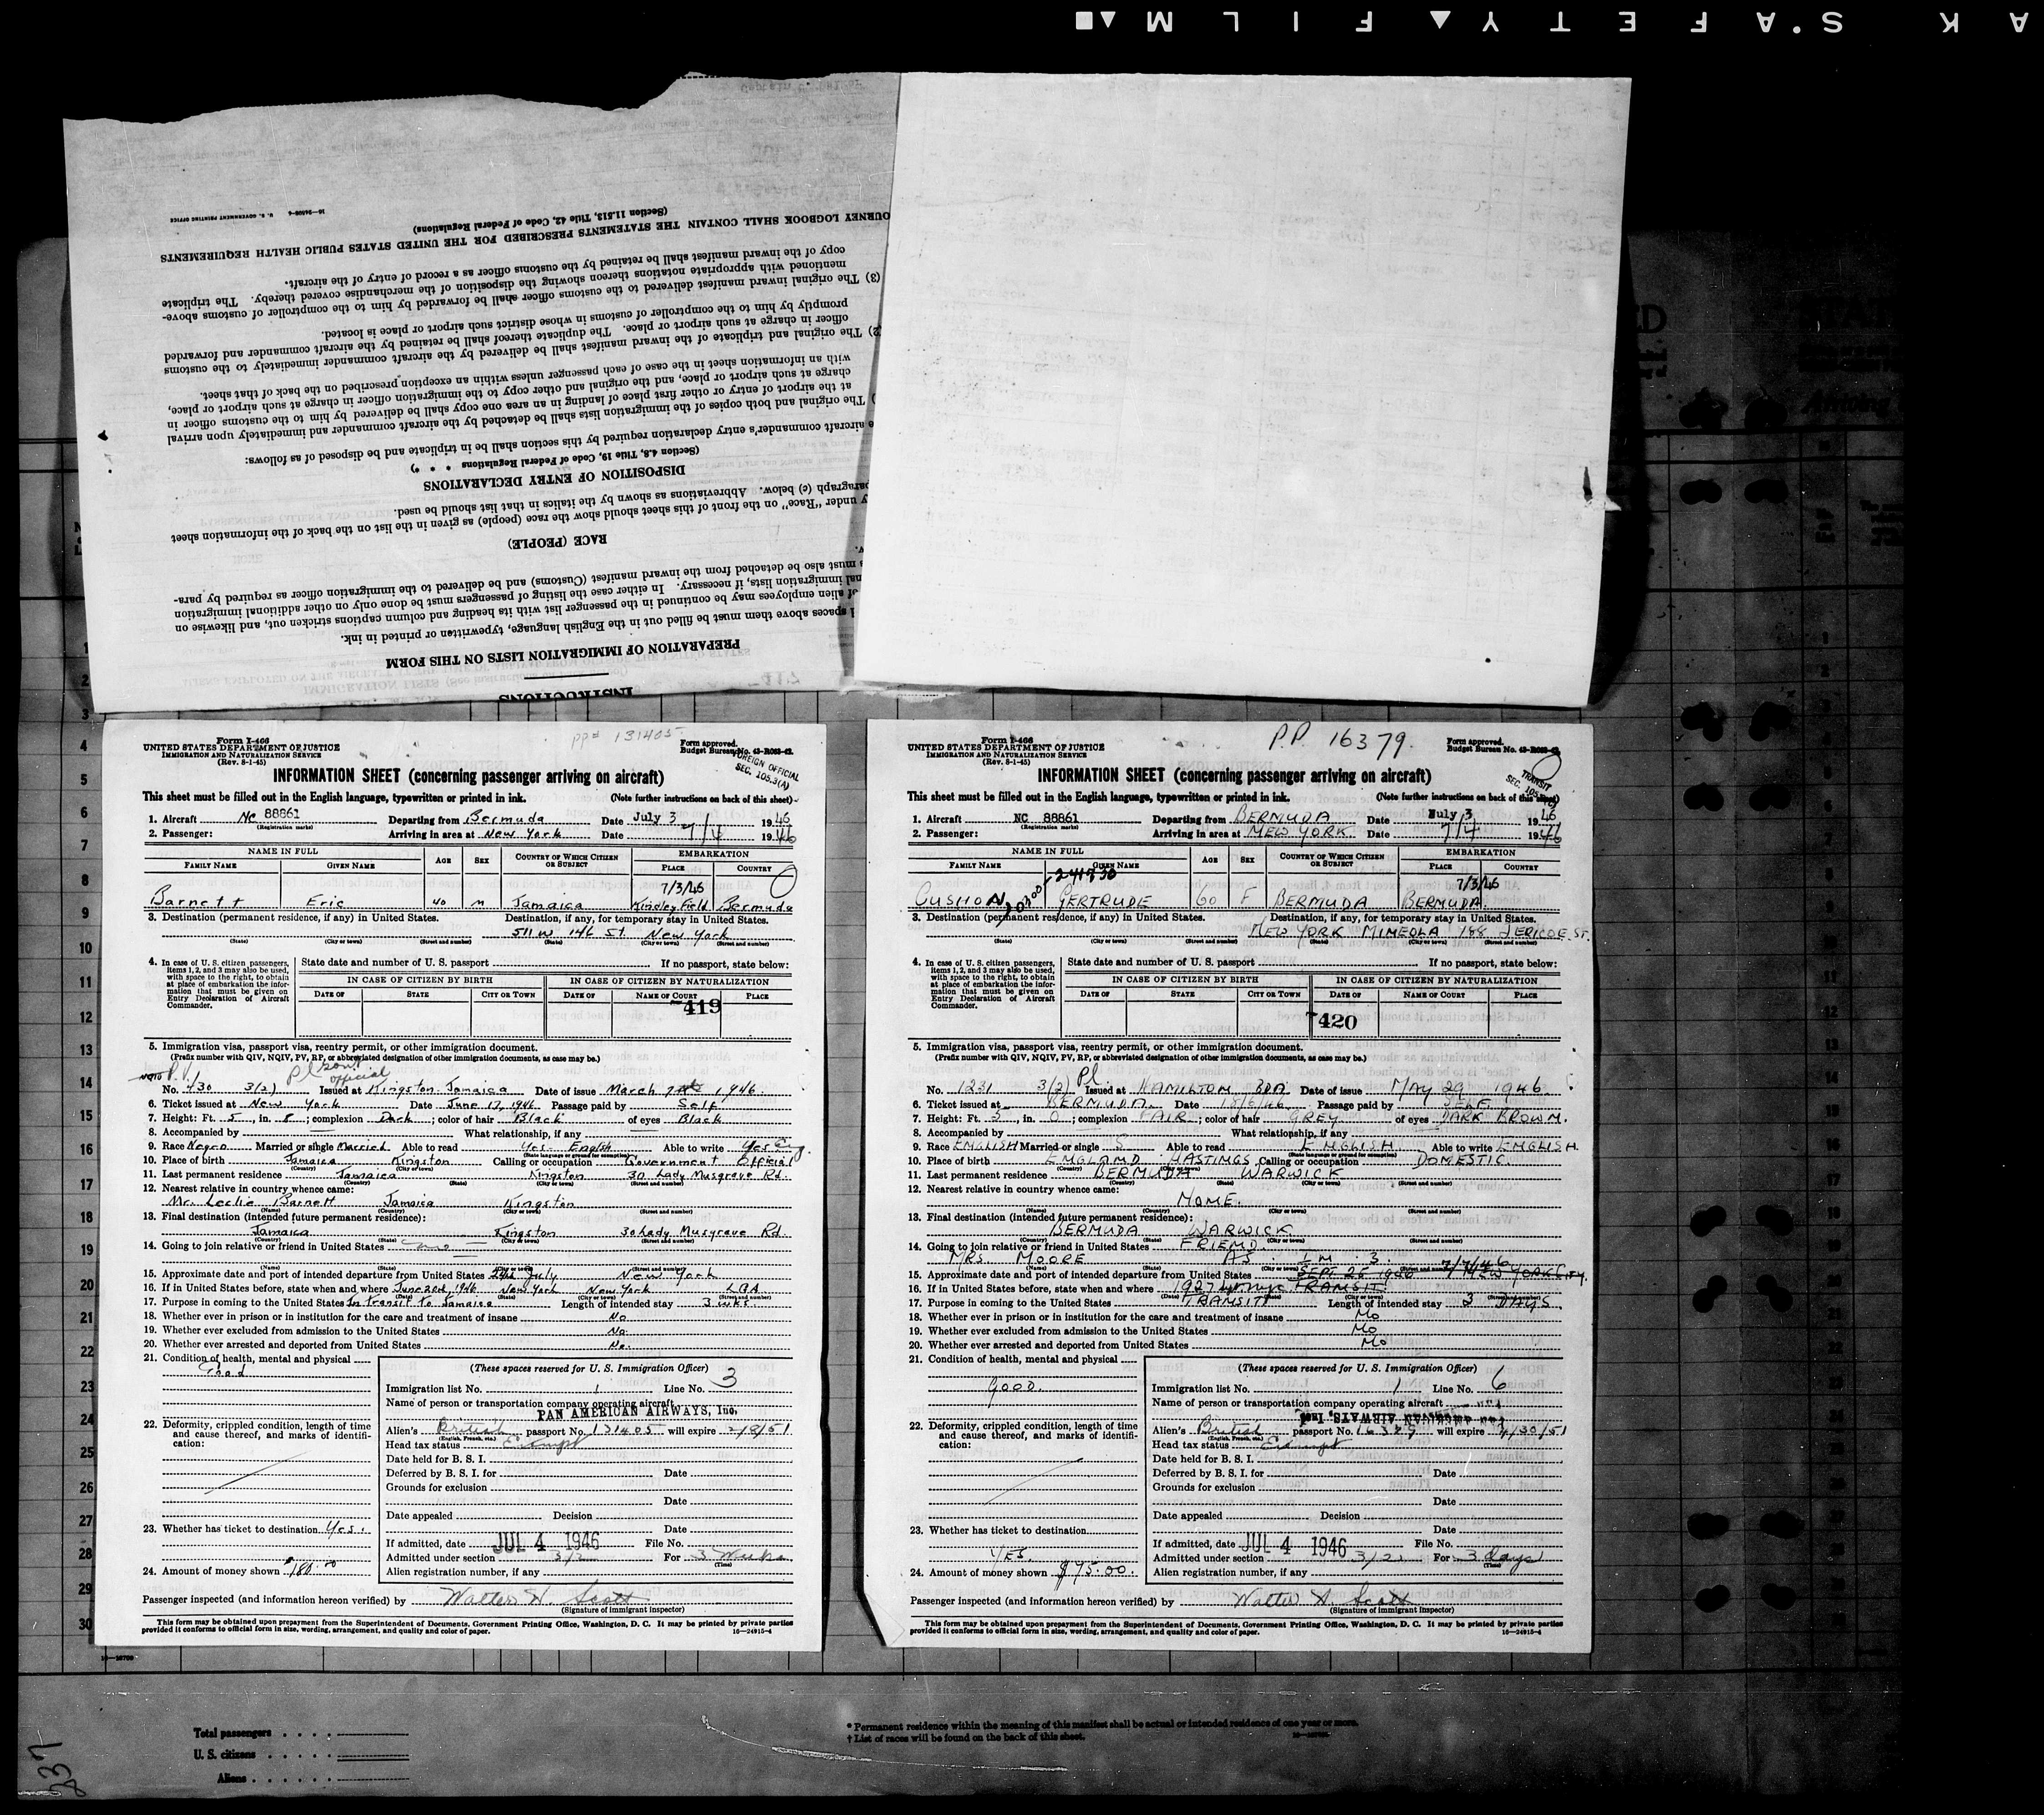 A K S'AFETY FILM
16—24906-4 U. S. GOVERNMENT PRINTING OFFICE
(Section 11.513, Title 42, Code of Federal Regulations)
OURNEY LOGBOOK SHALL CONTAIN THE STATEMENTS PRESCRIBED FOR THE UNITED STATES PUBLIC HEALTH REQUIREMENTS
copy of the inward manifest shall be retained by the customs officer as a record of entry of the aircraft.
mentioned with appropriate notations thereon showing the disposition of the merchandise covered thereby. The triplicate
(3) The original inward manifest delivered to the customs officer shall be forwarded by him to the comptroller of customs above-
promptly by him to the comptroller of customs in whose district such airport or place is located.
officer in charge at such airport or place. The duplicate thereof shall be retained by the aircraft commander and forwarded
2) The original and triplicate of the inward manifest shall be delivered by the aircraft commander immediately to the customs
with an information sheet in the case of each passenger unless within an exception prescribed on the back of that sheet.
charge at such airport or place, and the original and other copy to the immigration officer in charge at such airport or place,
at the airport of entry or other first place of landing in an area one copy shall be delivered by him to the customs officer in
) The original and both copies of the immigration lists shall be detached by the aircraft commander and immediately upon arrival
e aircraft commander's entry declaration required by this section shall be in triplicate and be disposed of as follows:
(Section 4.8, Title 19, Code of Federal Regulations * * *)
DISPOSITION OF ENTRY DECLARATIONS
paragraph (c) below. Abbreviations as shown by the italics in that list should be used.
y under "Race" on the front of this sheet should show the race (people) as given in the list on the back of the information sheet
RACE (PEOPLE)
s must also be detached from the inward manifest (Customs) and be delivered to the immigration officer as required by para-
nal immigration lists, if necessary. In either case the listing of passengers must be done only on other additional immigration
of alien employees may be continued in the passenger list with its heading and column captions stricken out, and likewise on
l spaces above them must be filled out in the English language, typewritten or printed in ink.
PREPARATION OF IMMIGRATION LISTS ON THIS FORM
INSTRUCTIONS
Form I-466
UNITED STATES DEPARTMENT OF JUSTICE
IMMIGRATION AND NATURALIZATION SERVICE
(Rev. 8-1-45)
pp# 131405
Form approved.
Budget Bureau No. 43-R063-42.
FOREIGN OFFICIAL
SEC. 105.3(A)
INFORMATION SHEET (concerning passenger arriving on aircraft)
This sheet must be filled out in the English language, typewritten or printed in ink. (Note further instructions on back of this sheet)
1. Aircraft NC 88861 Departing from Bermuda Date July 3 1946
(Registration marks)
2. Passenger: Arriving in area at New York Date 7/4 1946
NAME IN FULL AGE SEX COUNTRY OF WHICH CITIZEN OR SUBJECT EMBARKATION
FAMILY NAME GIVEN NAME PLACE COUNTRY
7/3/46
Barnett Eric 40 M Jamaica Kindley Field Bermuda
3. Destination (permanent residence, if any) in United States. Destination, if any, for temporary stay in United States.
511 W 146 St. New York
(State) (City or town) (Street and number) (State) (City or town) (Street and number)
4. In case of U. S. citizen passengers, items 1, 2, and 3 may also be used, with space to the right, to obtain at place of embarkation the information that must be given on Entry Declaration of Aircraft Commander.
State date and number of U. S. passport If no passport, state below:
IN CASE OF CITIZEN BY BIRTH IN CASE OF CITIZEN BY NATURALIZATION
DATE OF STATE CITY OR TOWN DATE OF NAME OF COURT PLACE
419
5. Immigration visa, passport visa, reentry permit, or other immigration document.
(Prefix number with QIV, NQIV, PV, RP, or abbreviated designation of other immigration documents, as case may be.)
official
No. 430 3(2) Issued at Kingston Jamaica Date of issue March 1946
6. Ticket issued at New York Date June 17, 1946 Passage paid by Self
7. Height: Ft. 5, in. 8; complexion Dark; color of hair Black of eyes Black
8. Accompanied by What relationship, if any
9. Race Negro Married or single Married Able to read Yes. English Able to write Yes Eng.
10. Place of birth Jamaica Kingston Calling or occupation Government Official
11. Last permanent residence Jamaica Kingston 30 Lady Musgrave Rd.
12. Nearest relative in country whence came:
Mr. Leslie Barnett Jamaica Kingston
13. Final destination (intended future permanent residence):
Jamaica Kingston 30 Lady Musgrave Rd.
14. Going to join relative or friend in United States no
15. Approximate date and port of intended departure from United States 24th July New York
16. If in United States before, state when and where June 20th 1946 New York New York LGA
17. Purpose in coming to the United States In transit to Jamaica Length of intended stay 3 wks
18. Whether ever in prison or in institution for the care and treatment of insane No
19. Whether ever excluded from admission to the United States No
20. Whether ever arrested and deported from United States No.
21. Condition of health, mental and physical Good
22. Deformity, crippled condition, length of time and cause thereof, and marks of identification:
23. Whether has ticket to destination Yes.
24. Amount of money shown $180.00
(These spaces reserved for U. S. Immigration Officer)
Immigration list No. 1 Line No. 3
Name of person or transportation company operating aircraft
PAN AMERICAN AIRWAYS, Inc.
Alien's British passport No. 131405 will expire 2/8/51
(English, French, etc.)
Head tax status Exempt
Date held for B. S. I.
Deferred by B. S. I. for Date
Grounds for exclusion
Date
Date appealed Decision
Date
If admitted, date JUL 4 1946 File No.
Admitted under section 3/2 For 3 Weeks
(Time)
Alien registration number, if any
Passenger inspected (and information hereon verified) by Walter H. Scott
(Signature of immigrant inspector)
This form may be obtained upon prepayment from the Superintendent of Documents, Government Printing Office, Washington, D. C. It may be printed by private parties
provided it conforms to official form in size, wording, arrangement, and quality and color of paper. 16—24915-4
Form I-466
UNITED STATES DEPARTMENT OF JUSTICE
IMMIGRATION AND NATURALIZATION SERVICE
(Rev. 8-1-45)
P.P. 16379.
Form approved.
Budget Bureau No. 43-R063-42.
TRANSIT
INFORMATION SHEET (concerning passenger arriving on aircraft)
This sheet must be filled out in the English language, typewritten or printed in ink. (Note further instructions on back of this sheet)
1. Aircraft NC 88861 Departing from BERMUDA Date July 3 1946
(Registration marks)
2. Passenger: Arriving in area at NEW YORK Date 7/4 1946
NAME IN FULL AGE SEX COUNTRY OF WHICH CITIZEN OR SUBJECT EMBARKATION
FAMILY NAME GIVEN NAME PLACE COUNTRY
7/3/46
CUSHON GERTRUDE 60 F BERMUDA BERMUDA
3. Destination (permanent residence, if any) in United States. Destination, if any, for temporary stay in United States.
NEW YORK MINEOLA 188 JERICOE ST.
(State) (City or town) (Street and number) (State) (City or town) (Street and number)
4. In case of U. S. citizen passengers, items 1, 2, and 3 may also be used, with space to the right, to obtain at place of embarkation the information that must be given on Entry Declaration of Aircraft Commander.
State date and number of U. S. passport If no passport, state below:
IN CASE OF CITIZEN BY BIRTH IN CASE OF CITIZEN BY NATURALIZATION
DATE OF STATE CITY OR TOWN DATE OF NAME OF COURT PLACE
420
5. Immigration visa, passport visa, reentry permit, or other immigration document.
(Prefix number with QIV, NQIV, PV, RP, or abbreviated designation of other immigration documents, as case may be.)
No. 1231 3(2) Pl. Issued at HAMILTON BDA Date of issue MAY 29 1946
6. Ticket issued at BERMUDA Date 18/6/46 Passage paid by SELF
7. Height: Ft. 5, in. 0; complexion FAIR; color of hair GREY of eyes DARK BROWN.
8. Accompanied by What relationship, if any
9. Race ENGLISH Married or single S Able to read ENGLISH Able to write ENGLISH
10. Place of birth ENGLAND HASTINGS Calling or occupation DOMESTIC
11. Last permanent residence BERMUDA WARWICK
12. Nearest relative in country whence came: NONE.
13. Final destination (intended future permanent residence):
BERMUDA WARWICK
14. Going to join relative or friend in United States FRIEND.
MRS MOORE AS IN 3.
15. Approximate date and port of intended departure from United States SEPT 26 1946 7/7/46 NEW YORK CITY.
16. If in United States before, state when and where 1927 NYC TRANSIT
17. Purpose in coming to the United States TRANSIT Length of intended stay 3 DAYS
18. Whether ever in prison or in institution for the care and treatment of insane No
19. Whether ever excluded from admission to the United States No
20. Whether ever arrested and deported from United States No
21. Condition of health, mental and physical GOOD.
22. Deformity, crippled condition, length of time and cause thereof, and marks of identification:
23. Whether has ticket to destination YES.
24. Amount of money shown $75.00.
(These spaces reserved for U. S. Immigration Officer)
Immigration list No. 1 Line No. 6
Name of person or transportation company operating aircraft
PAN AMERICAN AIRWAYS, Inc.
Alien's British passport No. 16379 will expire 4/30/51
(English, French, etc.)
Head tax status Exempt
Date held for B. S. I.
Deferred by B. S. I. for Date
Grounds for exclusion
Date
Date appealed Decision
Date
If admitted, date JUL 4 1946 File No.
Admitted under section 3/2 For 3 days
(Time)
Alien registration number, if any
Passenger inspected (and information hereon verified) by Walter H. Scott
(Signature of immigrant inspector)
This form may be obtained upon prepayment from the Superintendent of Documents, Government Printing Office, Washington, D. C. It may be printed by private parties
provided it conforms to official form in size, wording, arrangement, and quality and color of paper. 16—24915-4
Total passengers
U. S. citizens
Aliens
* Permanent residence within the meaning of this manifest shall be actual or intended residence of one year or more.
† List of races will be found on the back of this sheet.
237